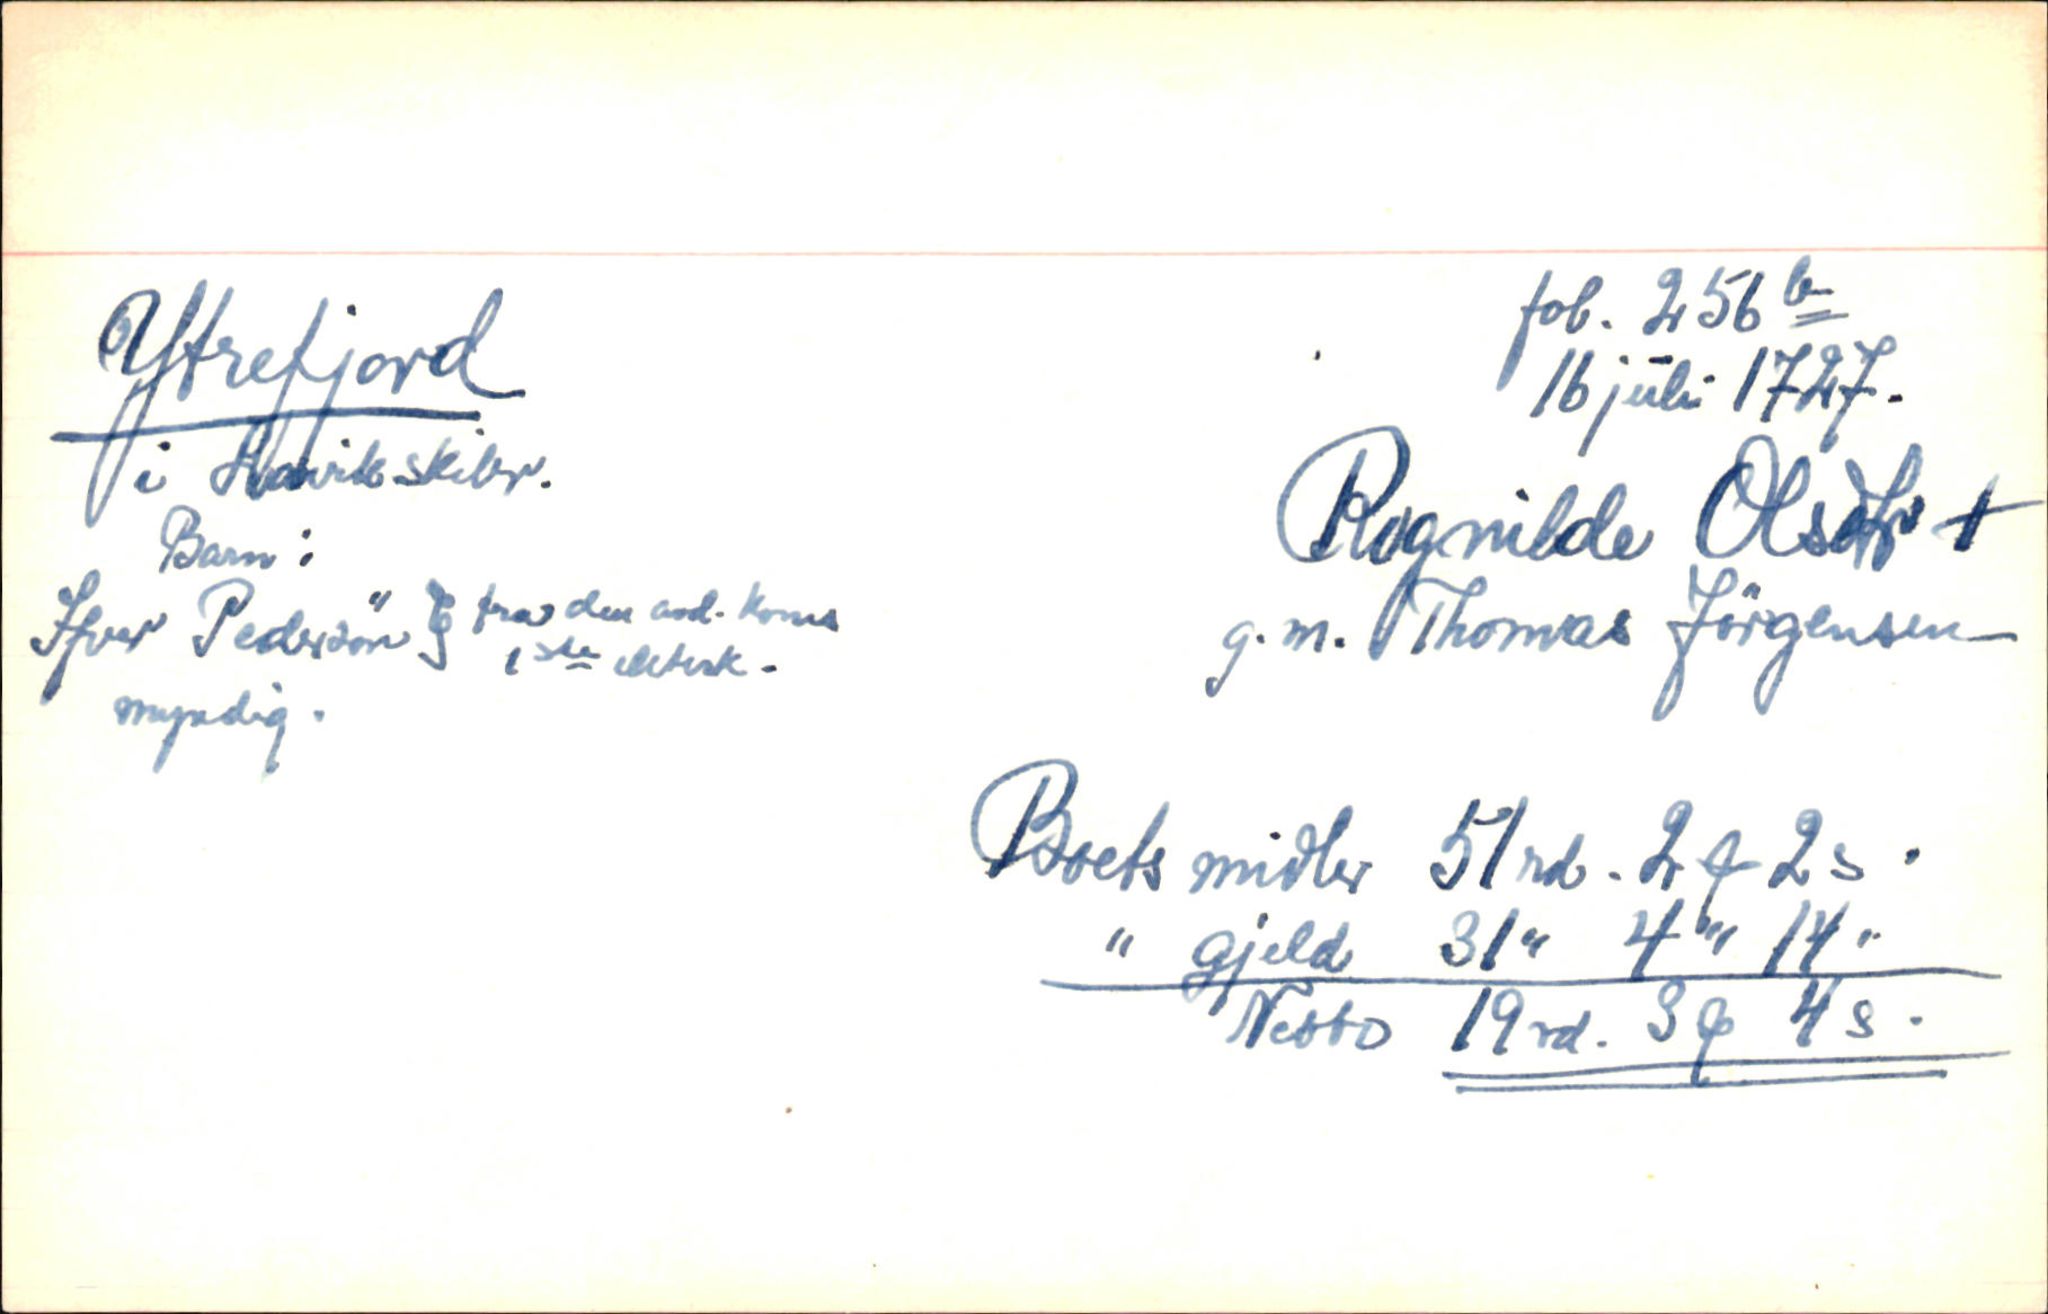 Ytrefjord
i Havikskibr.
Barn:
Ifver Pedersön } fra den avd. kones
1ste ektesk.
myndig.
fol. 256 b
16 juli 1727.
Ragnilde Olsdtr +
g. m. Thomas Jörgensen
Boets midler 51 rd. 2 ₰ 2 s.
" gjeld 31 " 4 " 14 "
Netto 19 rd. 3 ₰ 4 s.